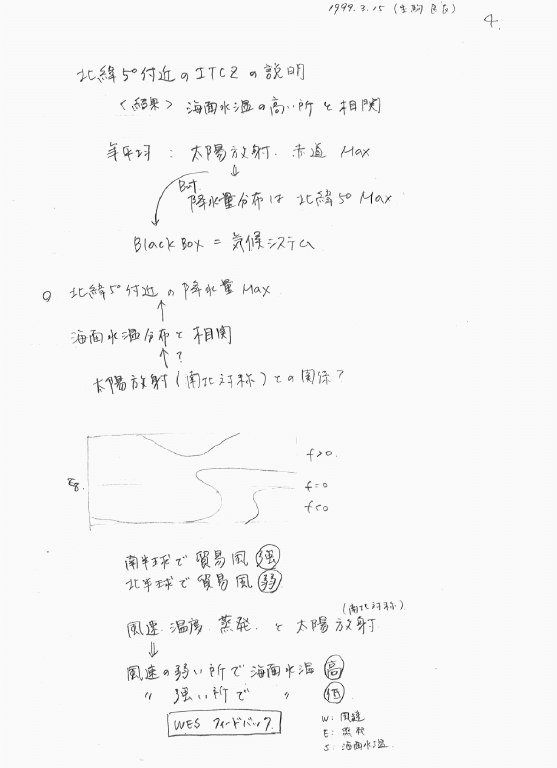 1999.3.15 (生駒 良友)
4.
北緯5°付近のITCZの説明
<結果> 海面水温の高い所と相関
年平均 : 太陽放射. 赤道 Max
⇓
But
降水量分布は北緯5° Max
Black Box = 気候システム
○ 北緯5°付近の降水量 Max
↑
海面水温分布と相関
↑?
太陽放射(南北対称)との関係?
f>0.
Eq. f=0
f<0
南半球で貿易風 強
北半球で貿易風 弱
(南北対称)
風速. 温度. 蒸発. と 太陽放射.
⇓
風速の弱い所で海面水温 高
〃 強い所で 〃 低
WES フィードバック.
W: 風速
E: 蒸発
S: 海面水温.